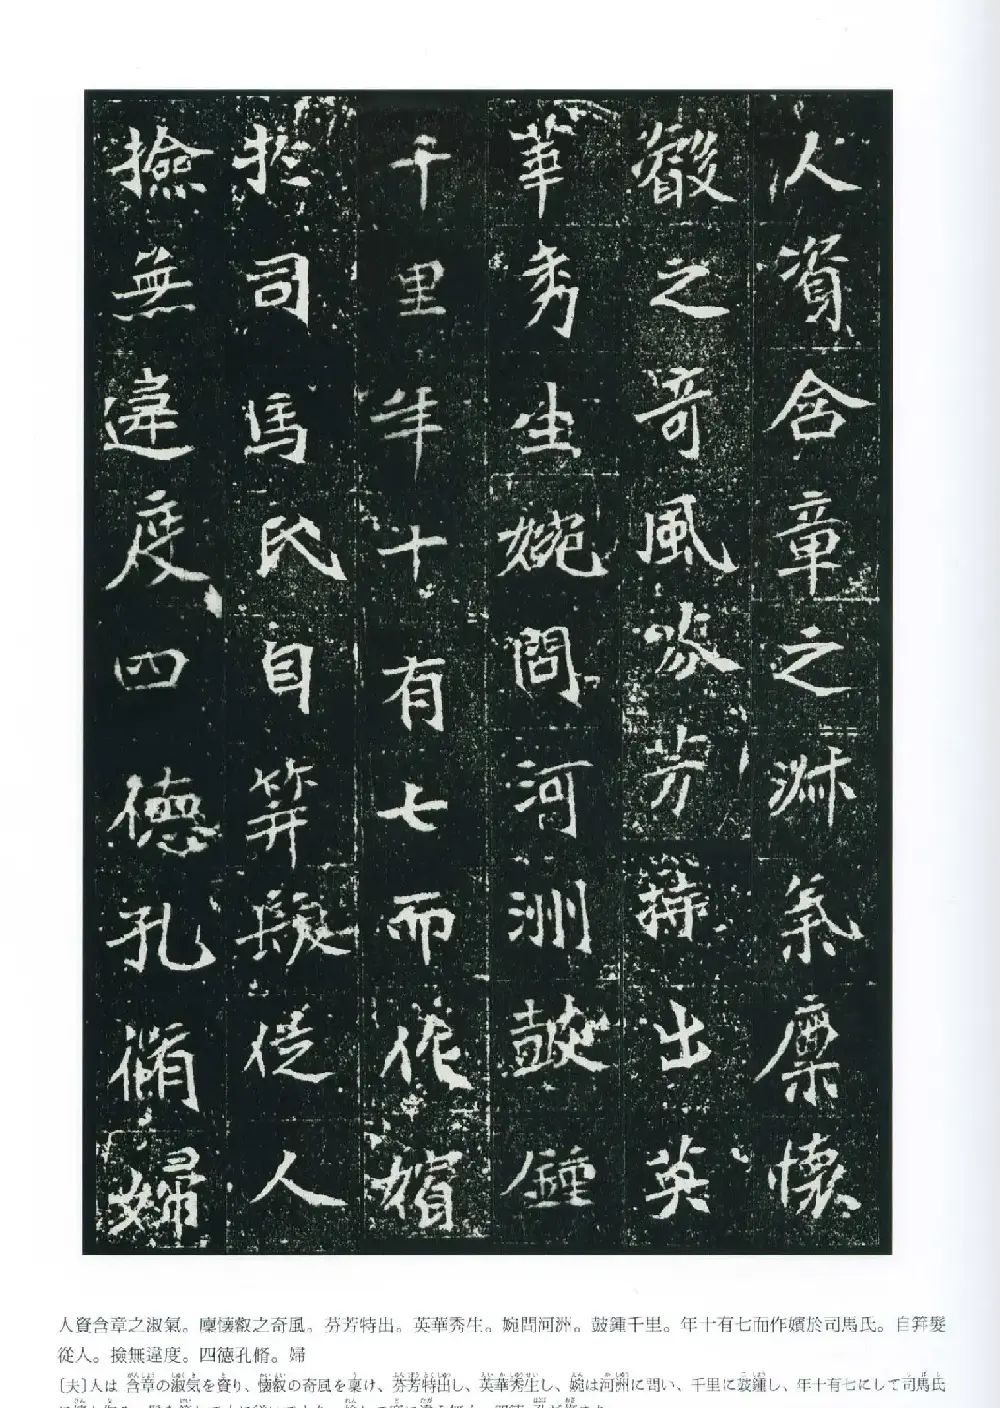 人資含章之淑氣稟懷
叡之奇風芬芳特出英
華秀生婉問河洲鼓鍾
千里年十有七而作嬪
於司馬氏自笄髮從人
撿無違度四德孔脩婦
人資含章之淑氣。稟懷叡之奇風。芬芳特出。英華秀生。婉問河洲。鼓鍾千里。年十有七而作嬪於司馬氏。自笄髮
從人。撿無違度。四德孔脩。婦
〔夫〕人は含章の淑気を資り、懐叡の奇風を稟け、芬芳特出し、英華秀生し、婉は河洲に問い、千里に鼓鍾し、年十有七にして司馬氏